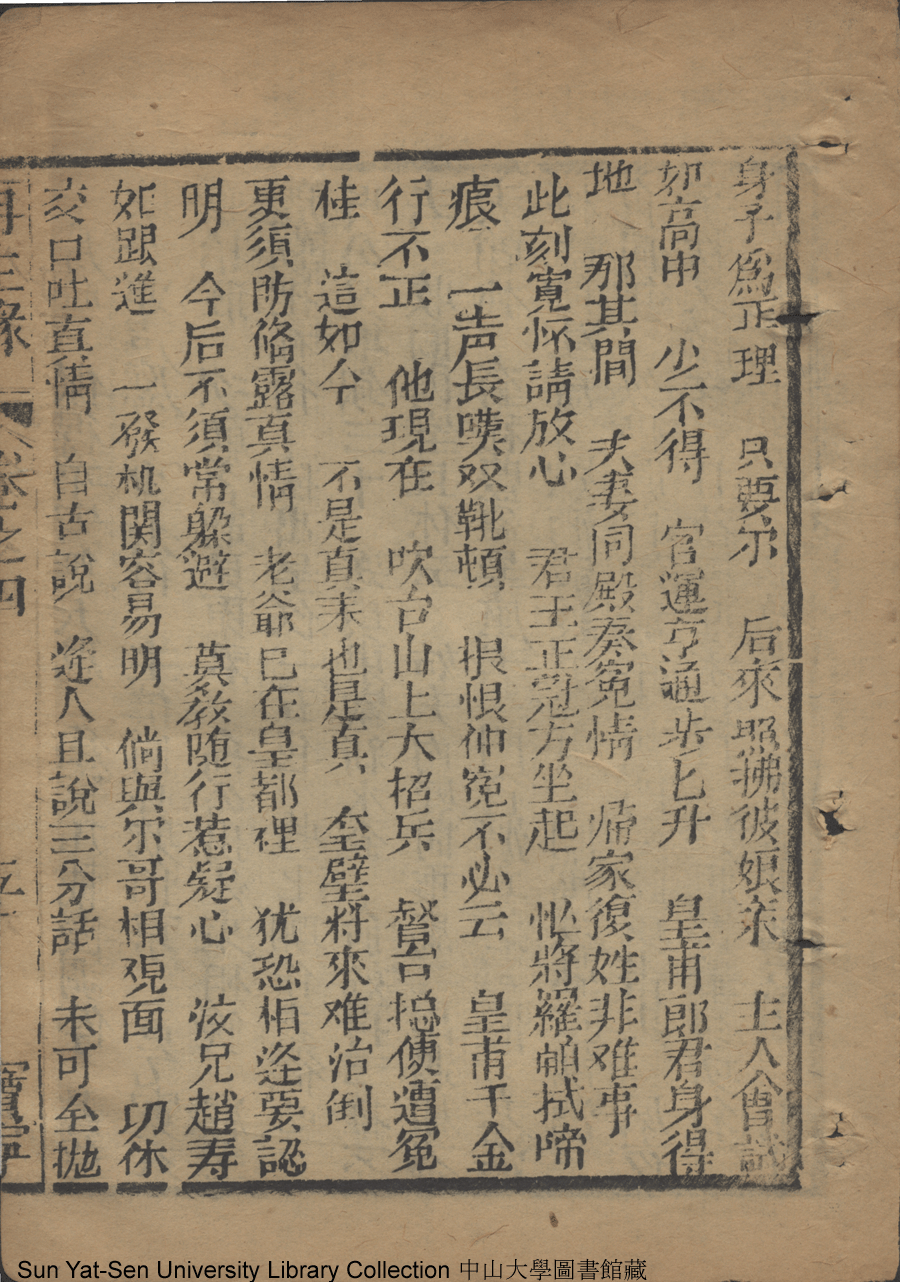 身子為正理　只要尔　后來照拂彼娘亲　主人會試
如高中　少不得　官運亨通步匕升　皇甫郎君身得
地　那其間　夫妻同殿奏冤情　歸家復姓非难事
此刻寬怀請放心　君王正冠方坐起　忙將羅帕拭啼
痕　一声長嘆双靴頓　恨恨仰冤不必云　皇甫千金
行不正　他現在　吹台山上大招兵　督台捴使遭冤
桂　這如今　不是真来也是真　全璧將來难治倒
更須防偹露真情　老爺已在皇都裡　犹恐相逢要認
明　今后不須常躲避　莫教随行惹疑心　汝兄趙寿
如跟進　一發机関容易明　倘與尔哥相覌面　切休
交口吐直情　自古說　逄人且說三分話　未可全抛
再生緣　卷之四　寶寧
Sun Yat-Sen University Library Collection 中山大學圖書館藏